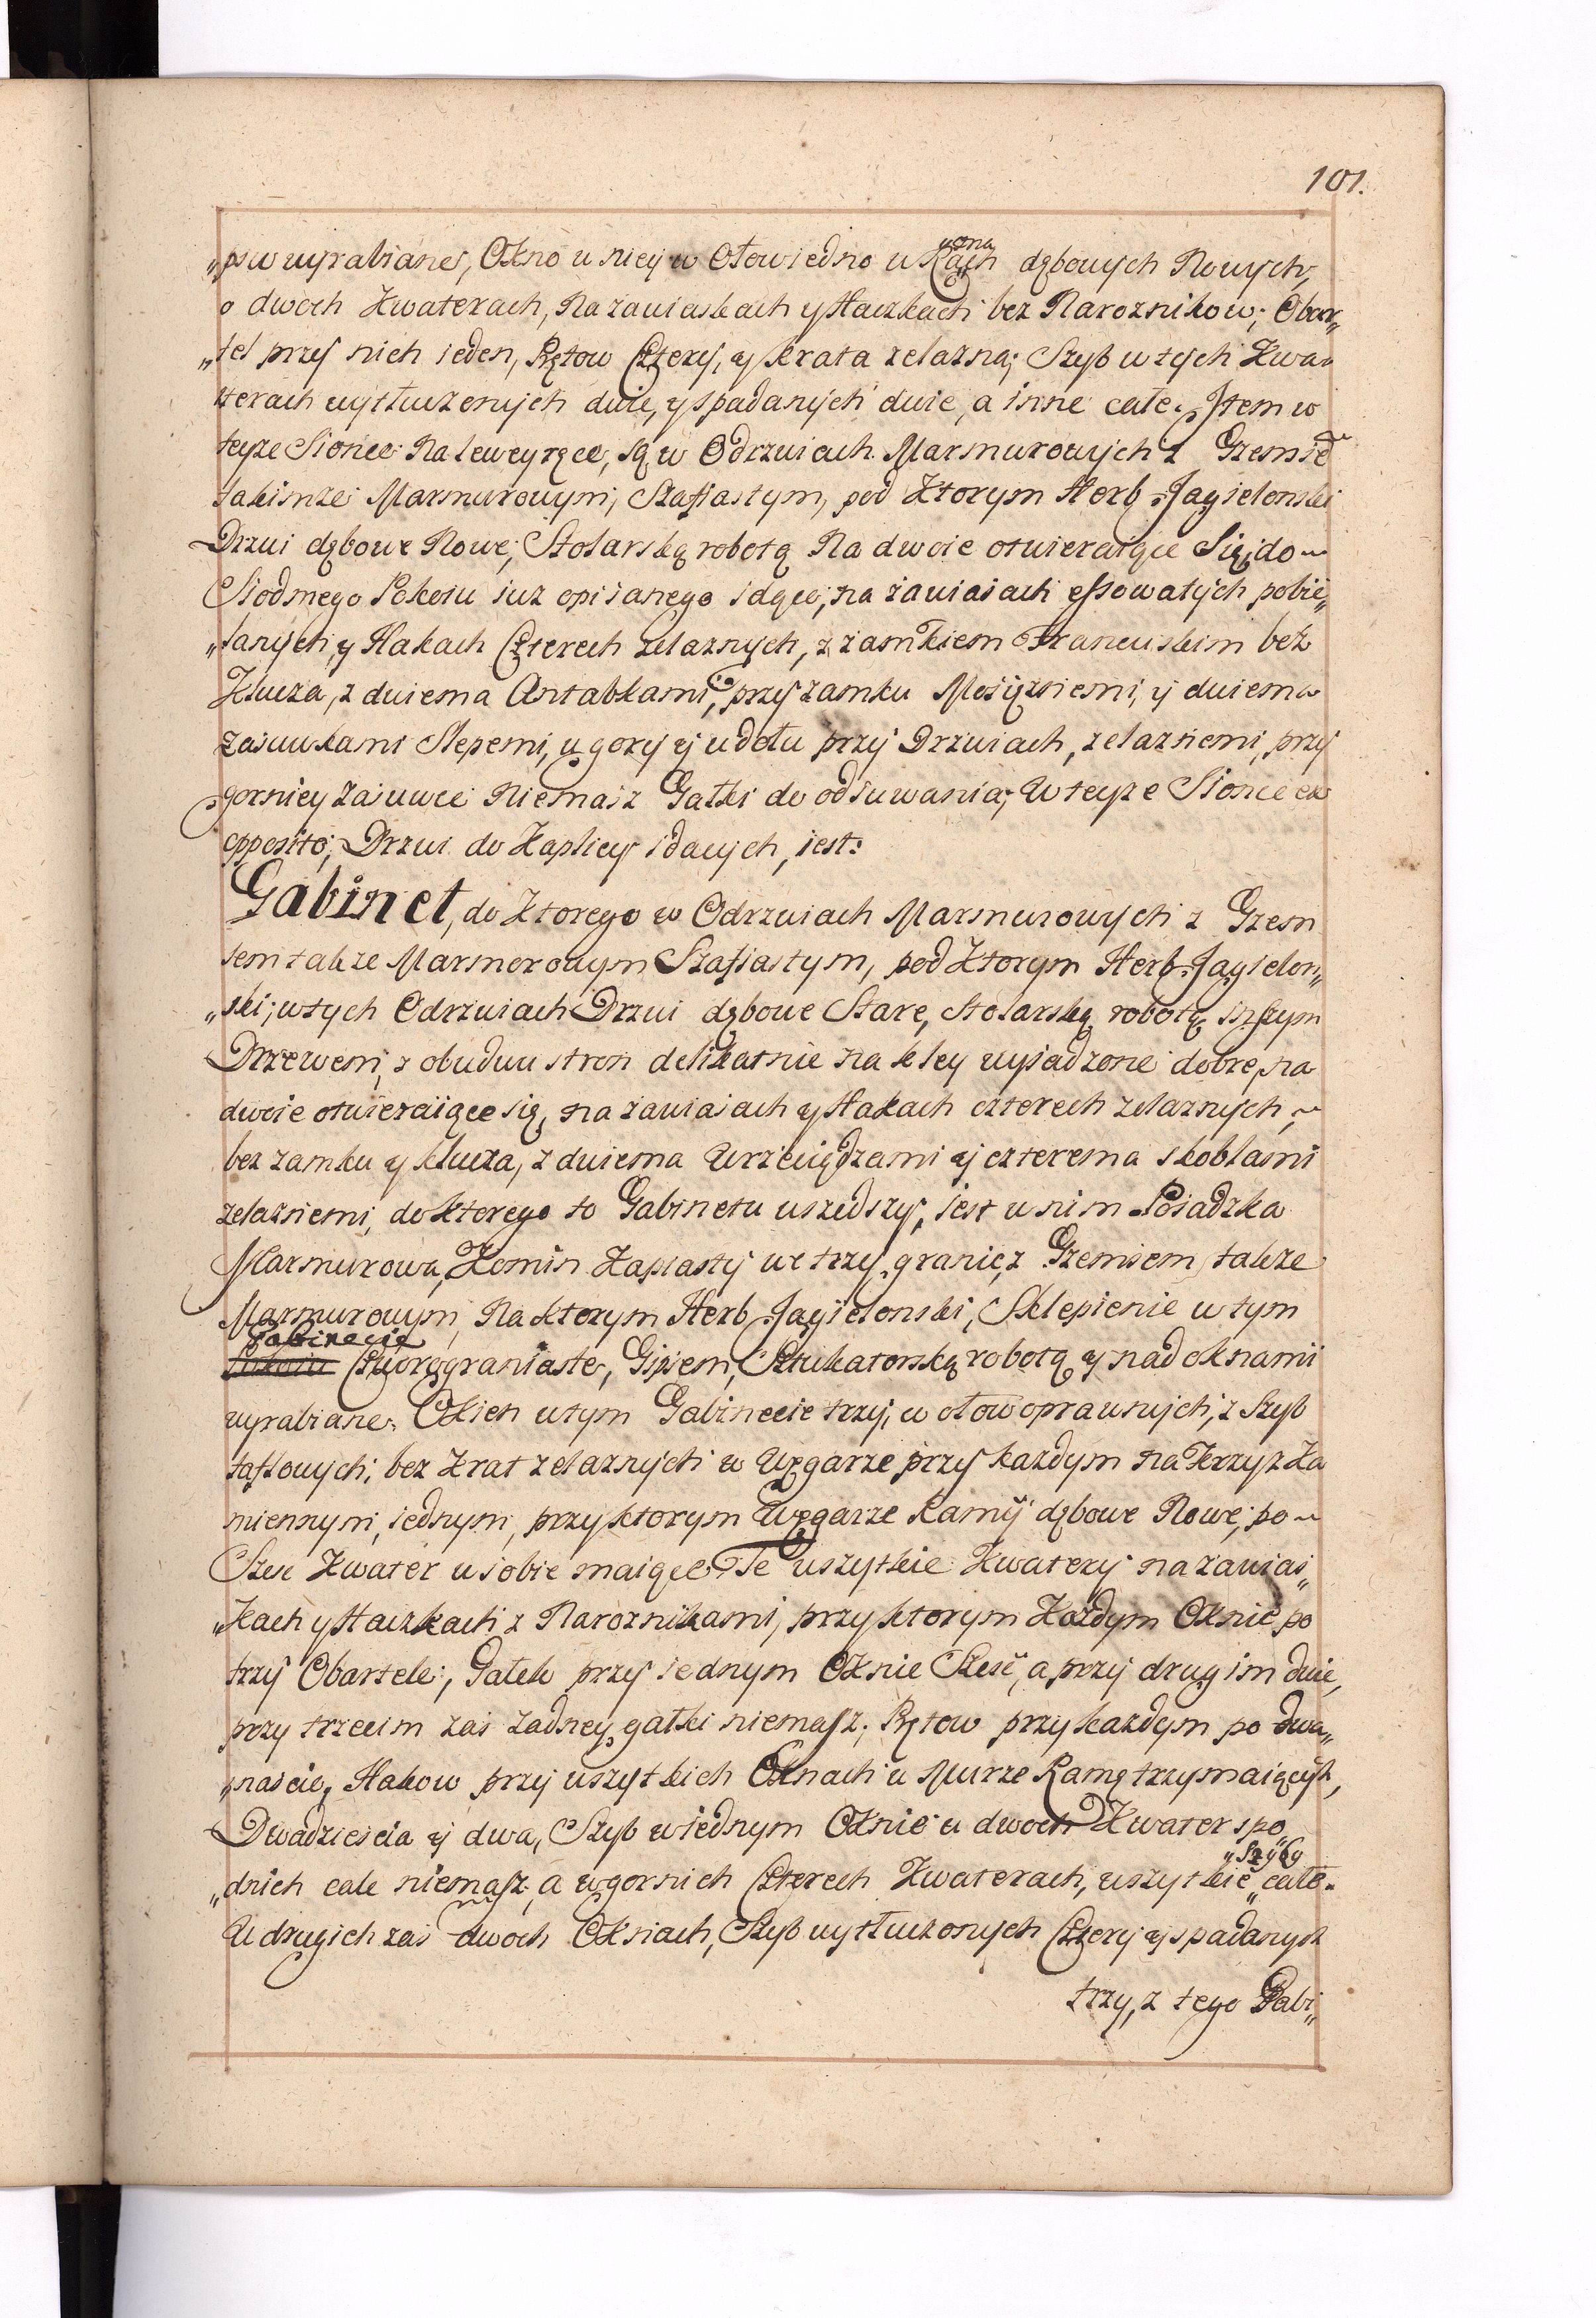 101.
„psw wyrabiane, Okno w niey w Ołow iedno w Ramach dębowych Nowych,
o dwoch Kwaterach, na zawiaskach y Haczkach bez Naroznikow; Obar„
„tel przy nich ieden, Prętow Cztery, y krata zelazna; Szyb w tych Kwa„
terach wytłuczonych dwie, y spadanych dwie, a inne całe. Item w
teyze Sionce Na lewey ręce, są w Odrzwiach Marmurowych z Gzemsē
takimze Marmurowym, Szafiastym, pod Ktorym Herb Jagielonski
Drzwi dębowe Nowe, Stolarską robotą Na dwoie otwieraiące Się, do
Siodmego Pokoiu iuz opisanego idące, na zawiasach essowatych pobie„
„lanych, y Hakach Czterech zelaznych, z zamkiem Francuskim bez
Klucza, z dwiema Antabkami, przy zamku Mosięzniemi, y dwiema
zasuwkami Slepemi, u gory y u dołu przy Drzwiach, zelazniemi, przy
gorniey zasuwce Niemasz Gałki do odsuwania; W teyze Sionce ex
opposito, Drzwi do Kaplicy idacych, iest:
Gabinet, do Ktorego w Odrzwiach Marmurowych z Gzem
sem takze Marmorowym Szafiastym, pod Ktorym Herb Jagielon„
„ski; w tych Odrzwiach Drzwi dębowe Stare, Stolarską robotą inszym
Drzewem, z obudwu stron delikatnie na kley wysadzone dobre, na
dwoie otwieraiące się, na zawiasach y Hakach czterech zelaznych,
bez zamku y klucza, z dwiema Wrzeciędzami y czterema skoblami
zelazniemi, do ktorego to Gabinetu wszedszy, iest w nim Posadzka
Marmurowa, Komin Kapiasty we trzy granie, z Gzemsem takze
Marmurowym, Na ktorym Herb Jagielonski, Sklepienie w tym
Gabinecie
Pokoiu Czworograniaste, Gipsem, Sztukatorską robotą y nad oknami
wyrabiane. Okien w tym Gabinecie trzy, w ołow oprawnych, z Szyb
taflowych, bez Krat zelaznych w Węgarze przy kazdym na Krzyz Ka
miennym, iednym, przy ktorym Węgarze Ramy dębowe Nowe, po
Szesc Kwater w sobie maiące. Te wszytkie Kwatery na zawias„
„kach y Haczkach z Naroznikami, przy ktorym Kazdym Oknie po
trzy Obartele, Gałek przy iednym Oknie Szesc, a przy drugim dwie,
przy trzecim zas zadney gałki niemasz. Prętow przy kazdym po dwa„
„nascie, Hakow przy wszytkich Oknach w Murze Ramę trzymaiących,
Dwadziescia y dwa, Szyb w iednym Oknie w dwoch Kwater spo„
„dnich cale niemasz, a w gornich Czterech Kwaterach, wszytkie „Szyby całe.
W drugich zas dwoch Oknach, Szyb wytłuczonych Cztery y spadanych
trzy, z tego Gabi„